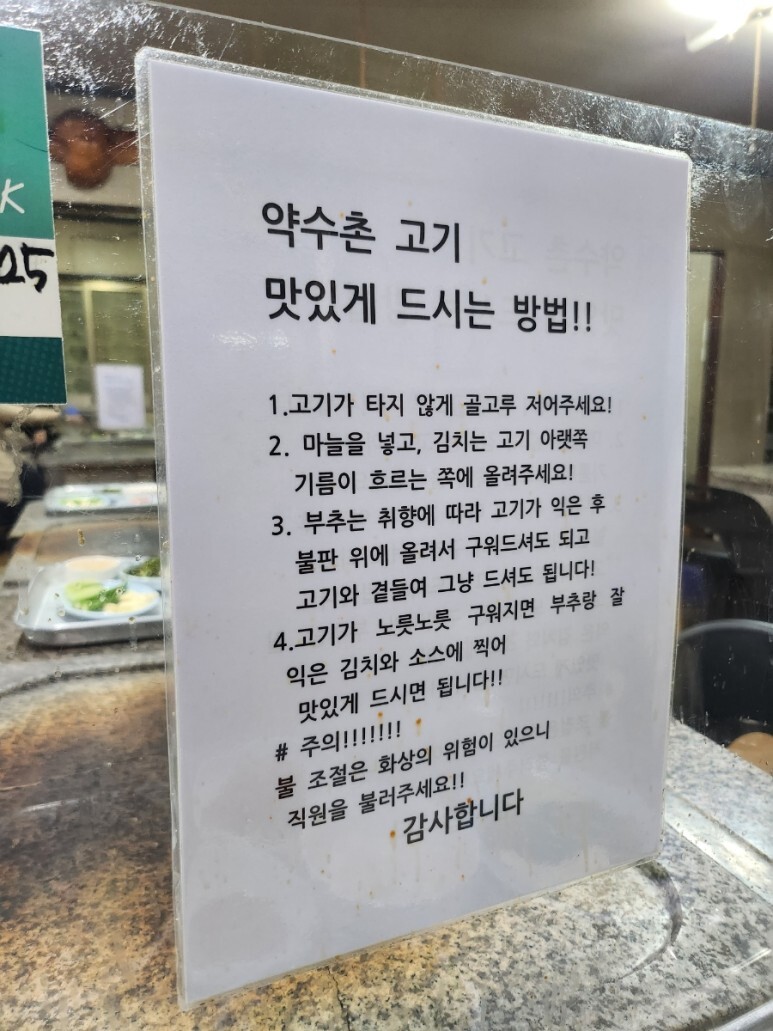 K
25
약수촌 고기
맛있게 드시는 방법!!
1.고기가 타지 않게 골고루 저어주세요!
2. 마늘을 넣고, 김치는 고기 아랫쪽
기름이 흐르는 쪽에 올려주세요!
3. 부추는 취향에 따라 고기가 익은 후
불판 위에 올려서 구워드셔도 되고
고기와 곁들여 그냥 드셔도 됩니다!
4.고기가 노릇노릇 구워지면 부추랑 잘
익은 김치와 소스에 찍어
맛있게 드시면 됩니다!!
# 주의!!!!!!!
불 조절은 화상의 위험이 있으니
직원을 불러주세요!!
감사합니다